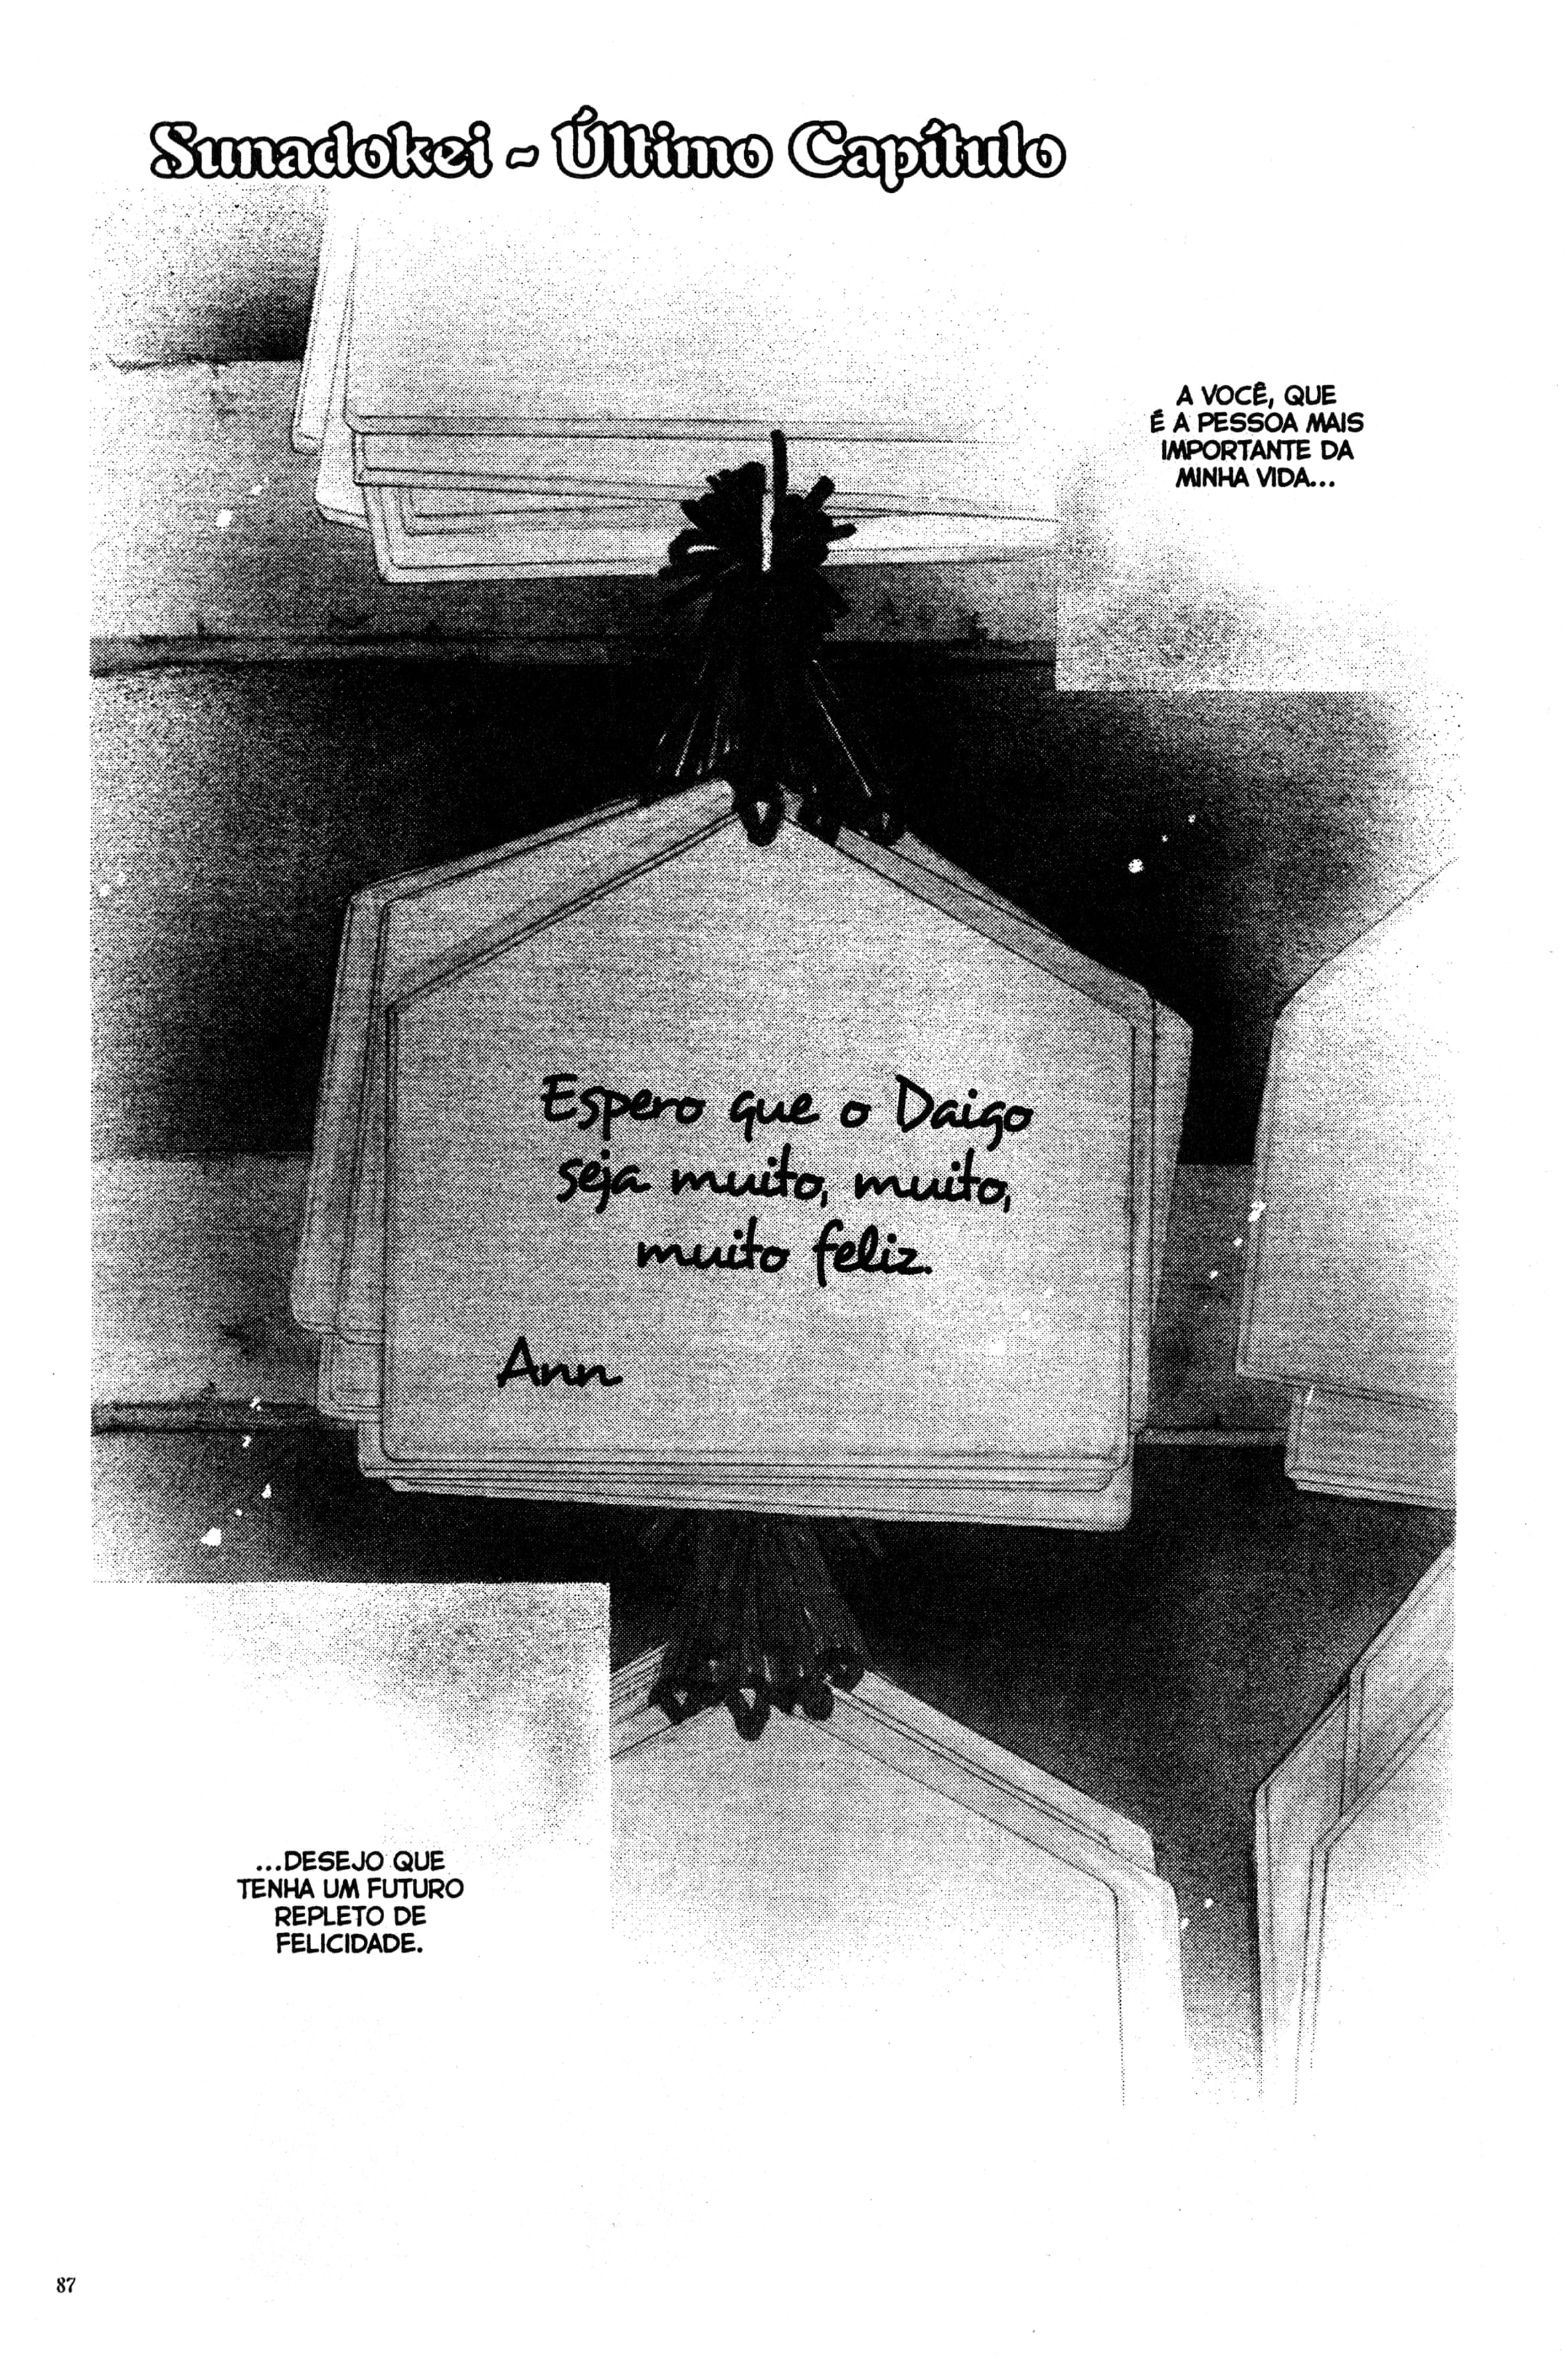 Sunadokei ~ Último Capítulo
A VOCÊ, QUE
É A PESSOA MAIS
IMPORTANTE DA
MINHA VIDA...
Espero que o Daigo
seja muito, muito,
muito feliz.
Ann
...DESEJO QUE
TENHA UM FUTURO
REPLETO DE
FELICIDADE.
87